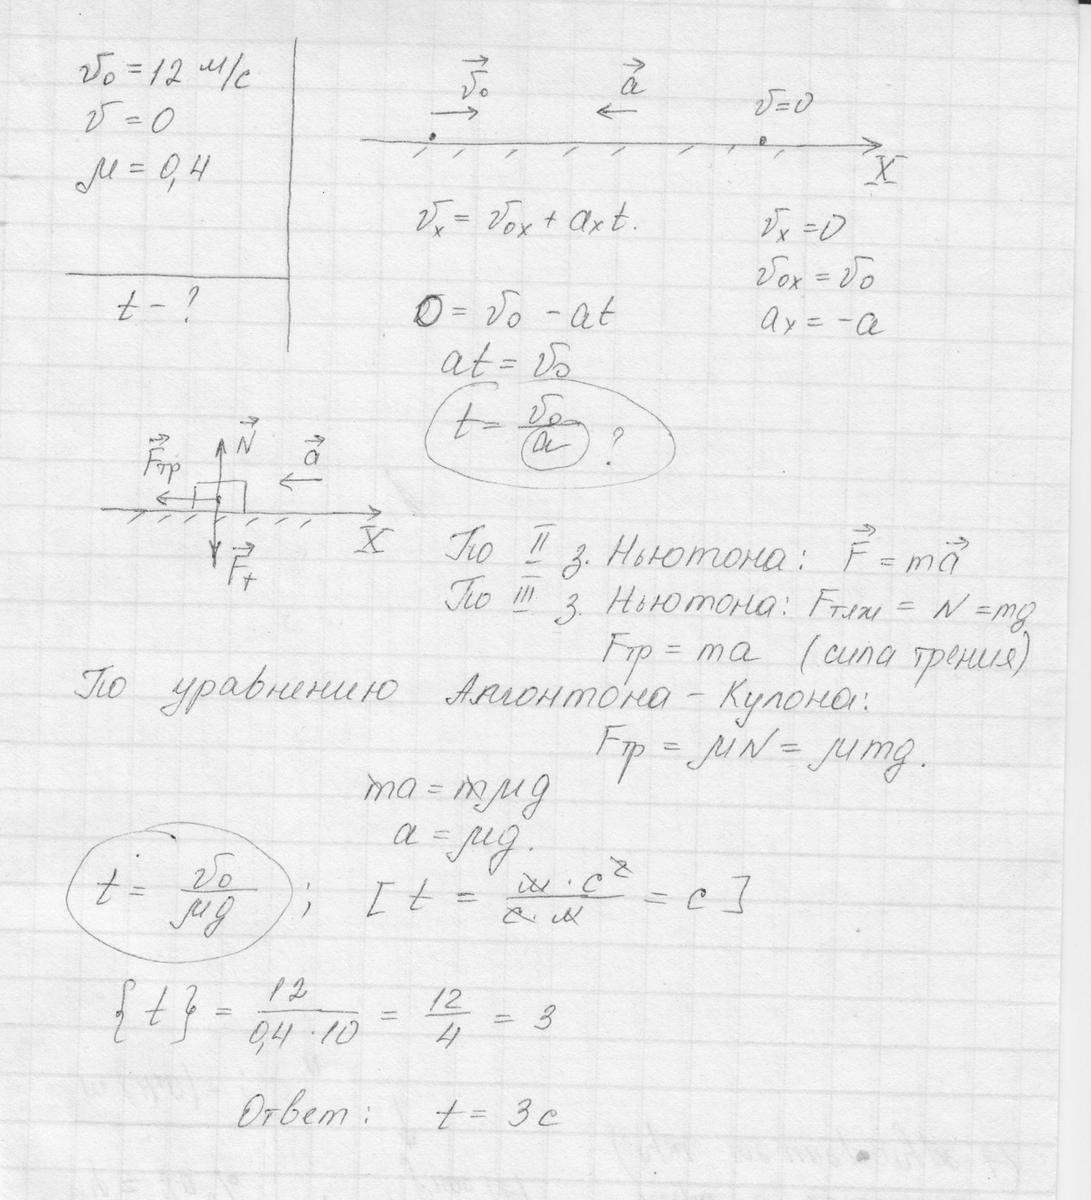 v₀ = 12 м/с
v = 0
μ = 0,4
t - ?
v⃗₀
a⃗
v=0
X
vₓ = v₀ₓ + aₓt.
vₓ = 0
v₀ₓ = v₀
0 = v₀ - at
aₓ = -a
at = v₀
t = v₀/a ?
N⃗
F⃗тр
a⃗
X
F⃗т
По II з. Ньютона: F⃗ = ma⃗
По III з. Ньютона: Fтяж = N = mg
Fтр = ma (сила трения)
По уравнению Амонтона - Кулона:
Fтр = μN = μmg.
ma = mμg
a = μg.
t = v₀/μg ; [ t = м · с²/с · м = с ]
{t} = 12/0,4 · 10 = 12/4 = 3
Ответ: t = 3 с